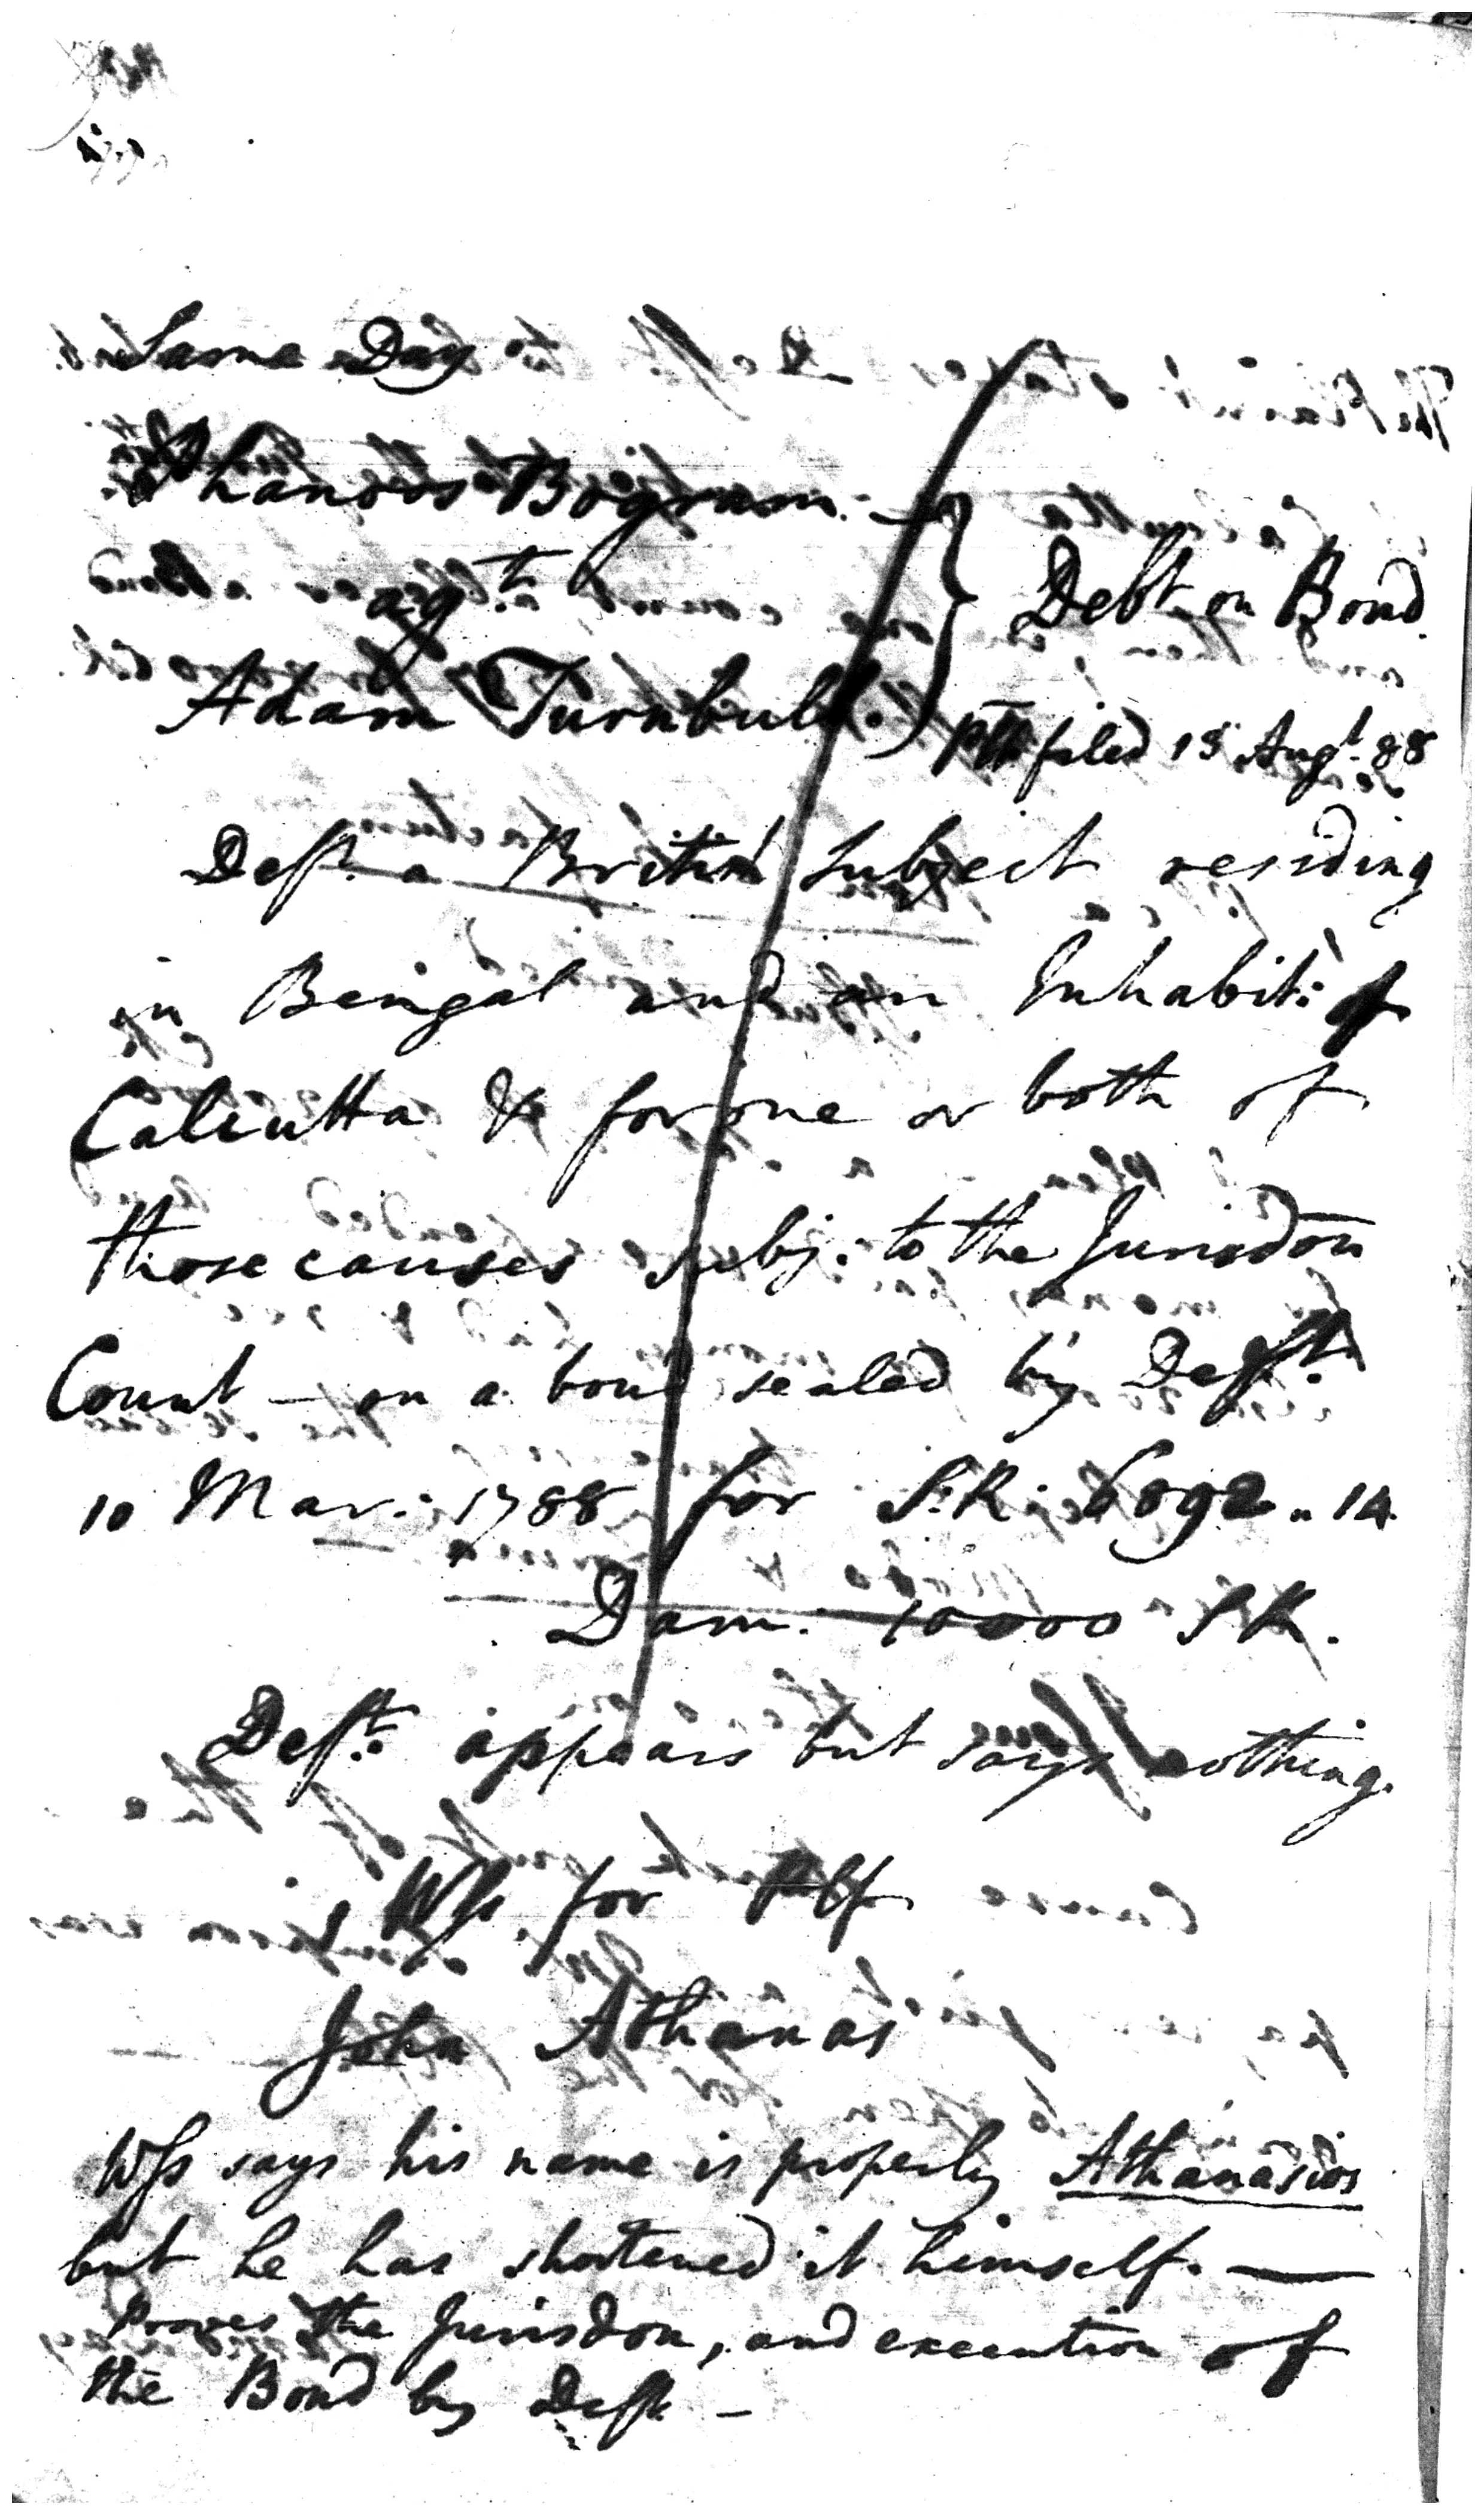 Same Day
Phanoos Bogram.
agt.
Adam Turnbull.
Debt on Bond.
filed 15 Augt. 88
Deft. a British Subject residing
in Bengal and an Inhabit: of
Calcutta & for one or both of
those causes subj: to the Jurisdon
Count — on a bond sealed by Deft.
10 Mar: 1788 for S.R. 6892 „ 14.
Dam. 10000 S R.
Deft: appears but says nothing.
Wss for Plf
John Athanas
Wss says his name is properly Athanasios
but he has shortened it himself. —
Proves the Jurisdon, and execution of
the Bond by Deft —